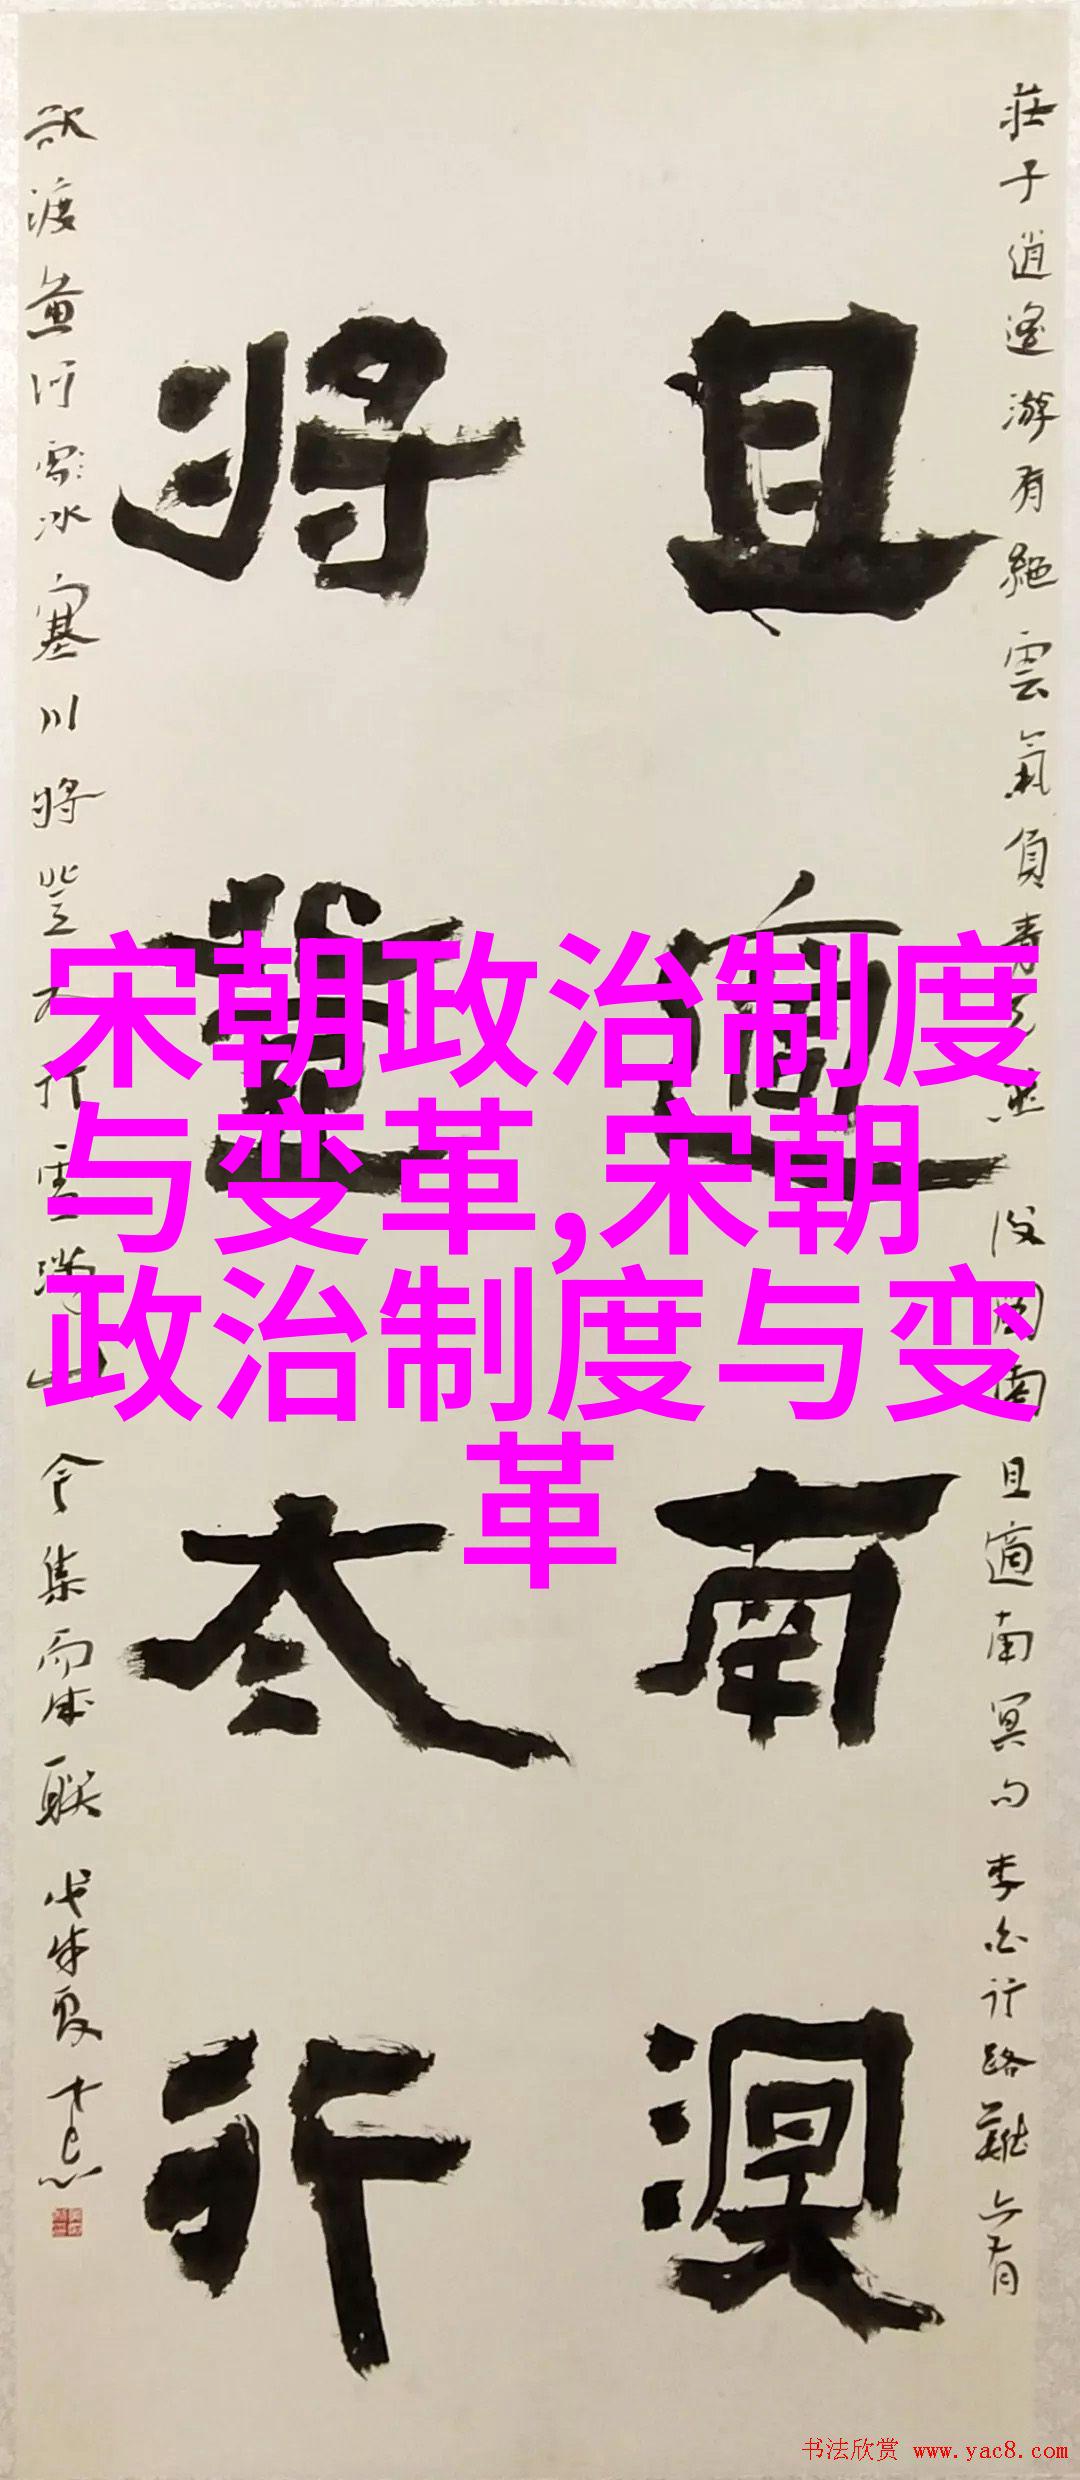 莊子逍遙游有絕雲氣負青天然後圖南且適南冥句李白行路難亦有
且適南溟
將登太行
欲渡黃河冰塞川將登太行雪滿山
今集而成聯戊戌夏
宋朝政治制度
与变革,宋朝
政治制度与变
革
书法欣赏 www.yac8.com